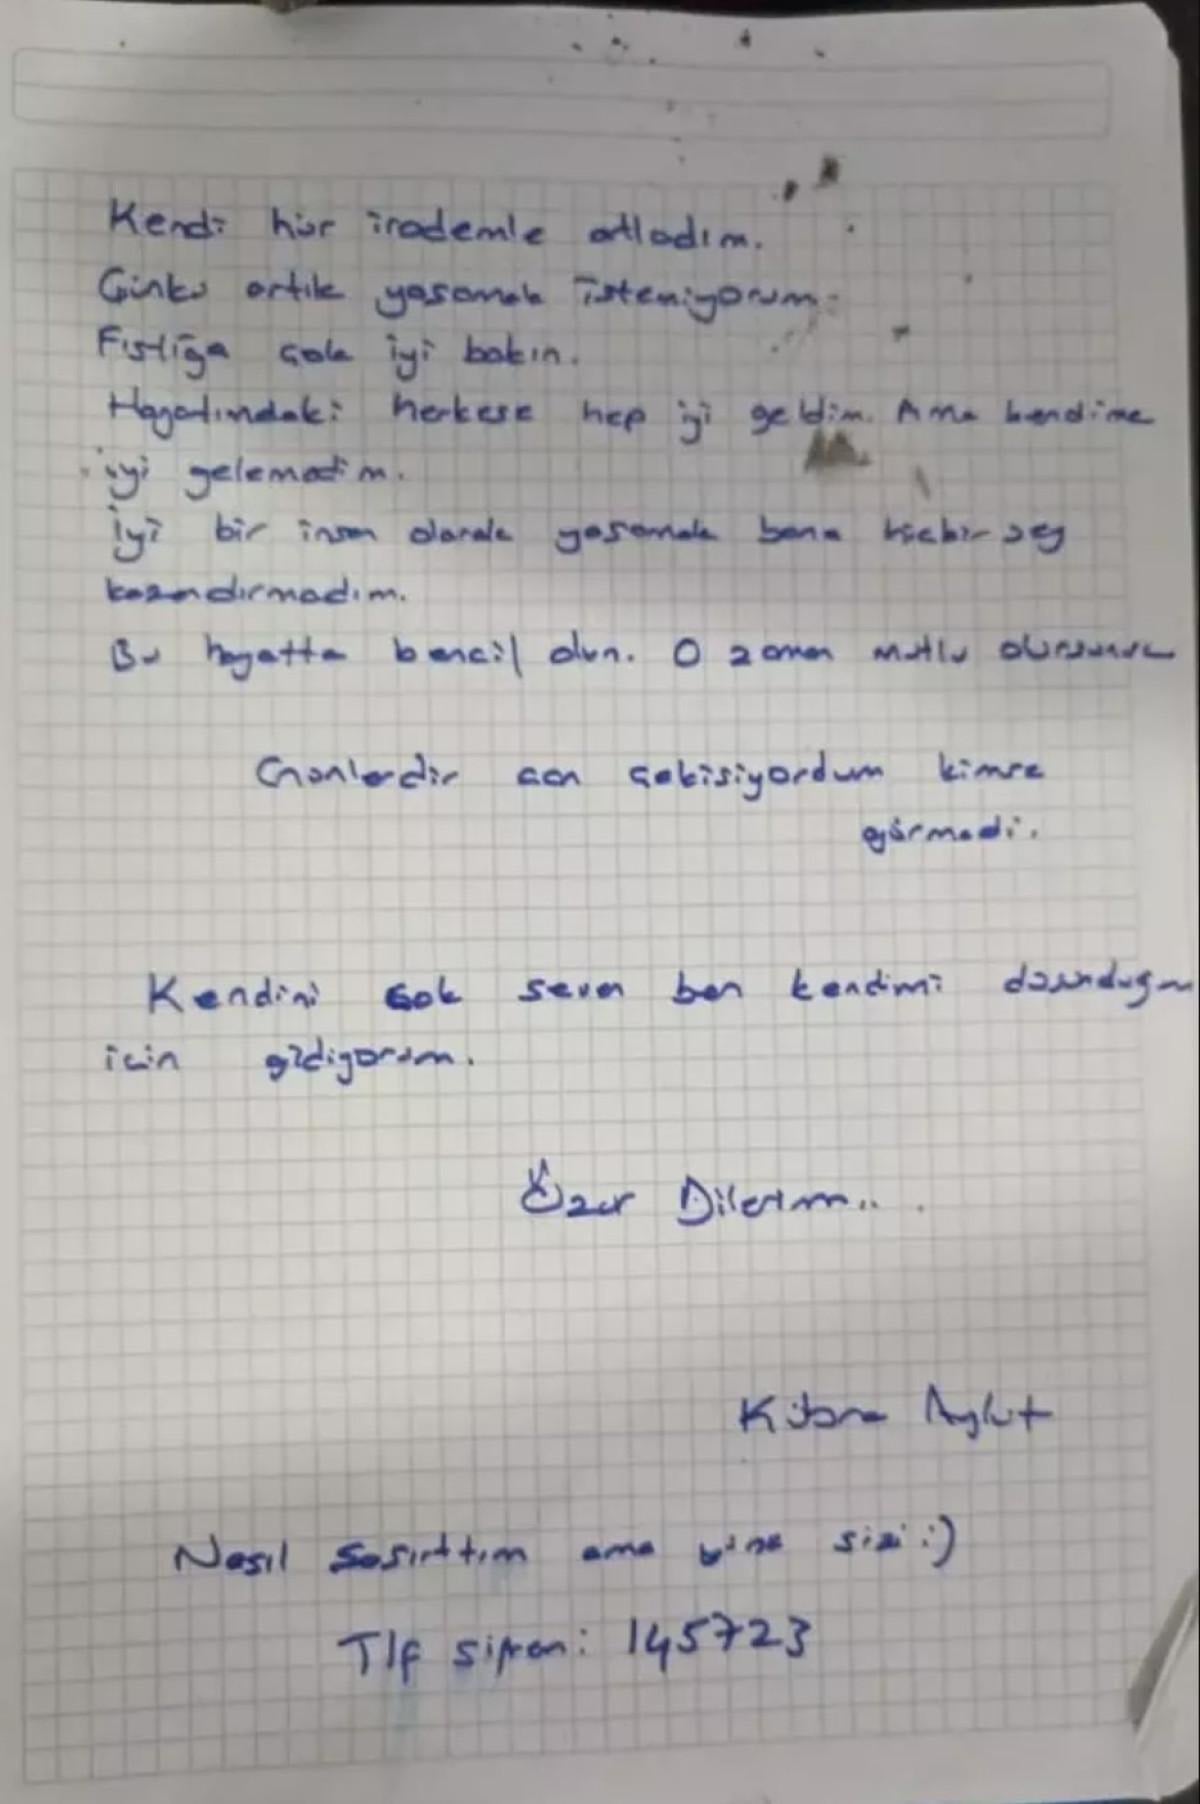 Kendi hür irademle atladım.
Çünkü artık yaşamak istemiyorum.
Fıstığa çok iyi bakın.
Hayatımdaki herkese hep iyi geldim. Ama kendime
iyi gelemedim.
İyi bir insan olarak yaşamak bana hiçbir şey
kazandırmadım.
Bu hayatta bencil olun. O zaman mutlu olursunuz
Günlerdir can çekişiyordum kimse
görmedi.
Kendini çok seven ben kendimi düşündüğüm
için gidiyorum.
Özür Dilerim..
Kübra Aykut
Nasıl şaşırttım ama yine sizi :)
Tlf şifrem: 145723